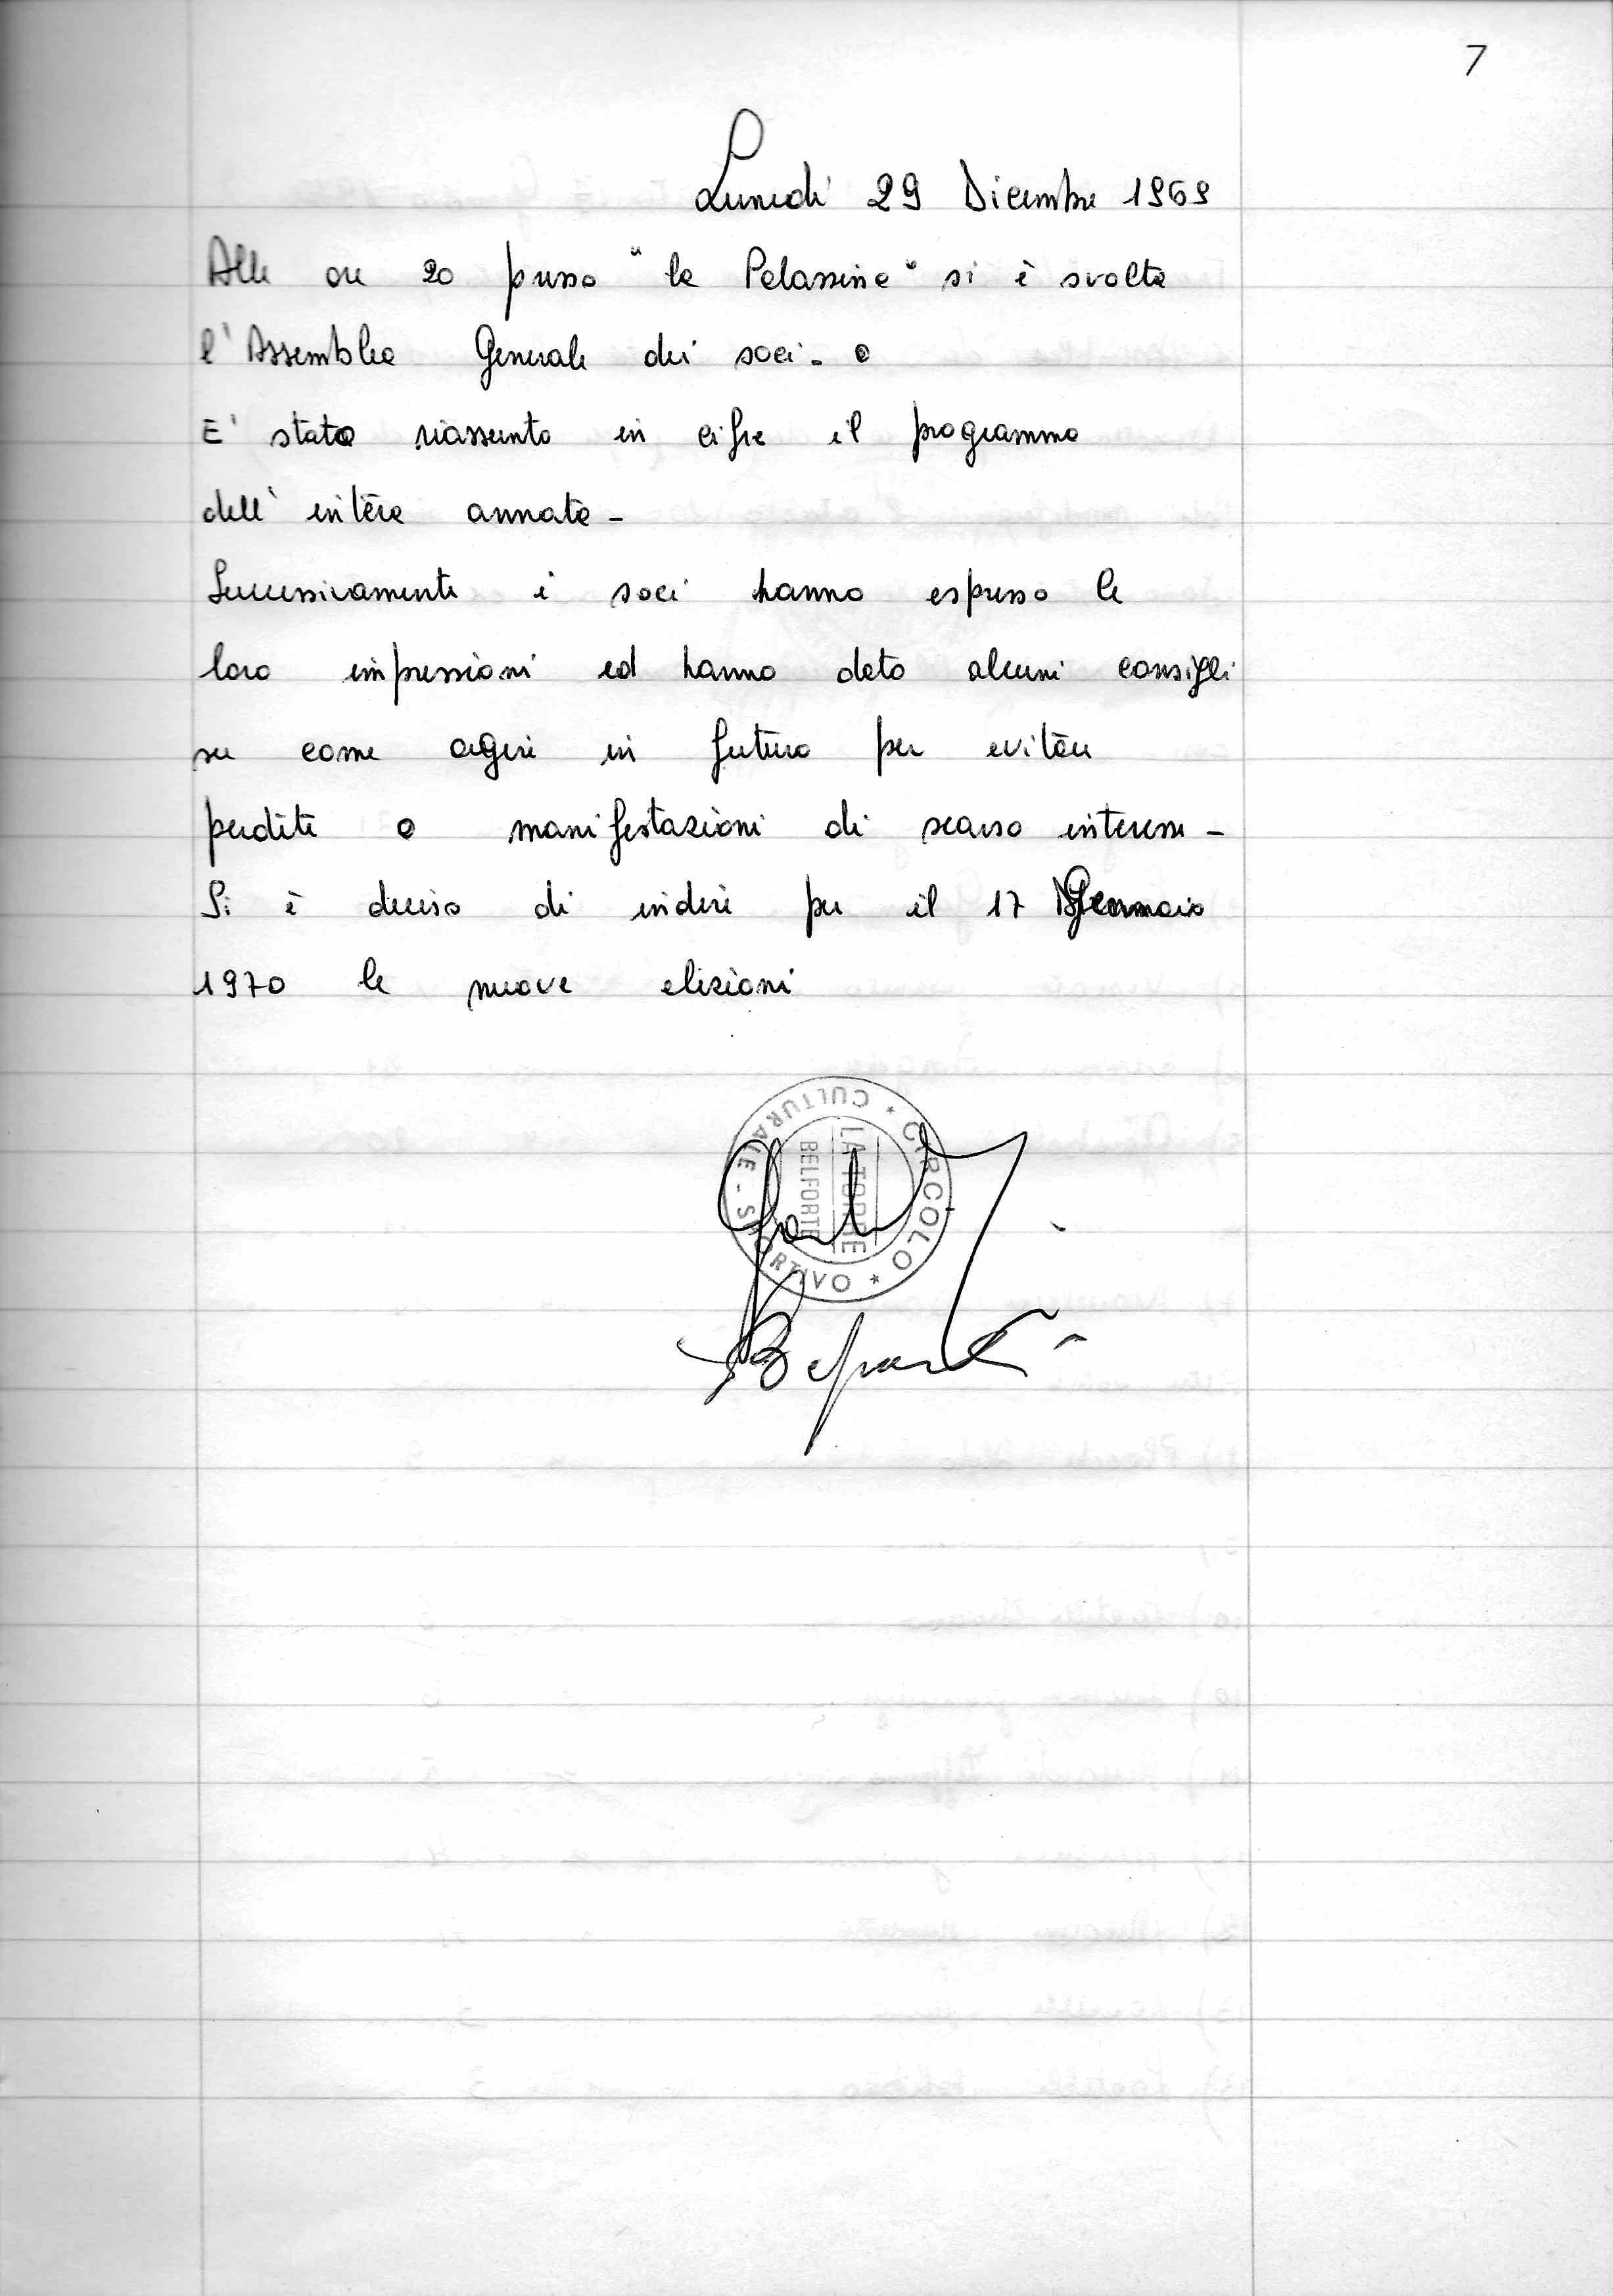 7
Lunedì 29 Dicembre 1969
Alle ore 20 presso "la Pelassina" si è svolta
l'Assemblea Generale dei soci -
E' stato riassunto in cifre il programma
dell'intera annata -
Successivamente i soci hanno espresso le
loro impressioni ed hanno dato alcuni consigli
su come agire in futuro per evitare
perdite o manifestazioni di scarso interesse -
Si è deciso di indire per il 17 Gennaio
1970 le nuove elezioni
* CIRCOLO * CULTURALE - SPORTIVO
LA TORRE
BELFORTE